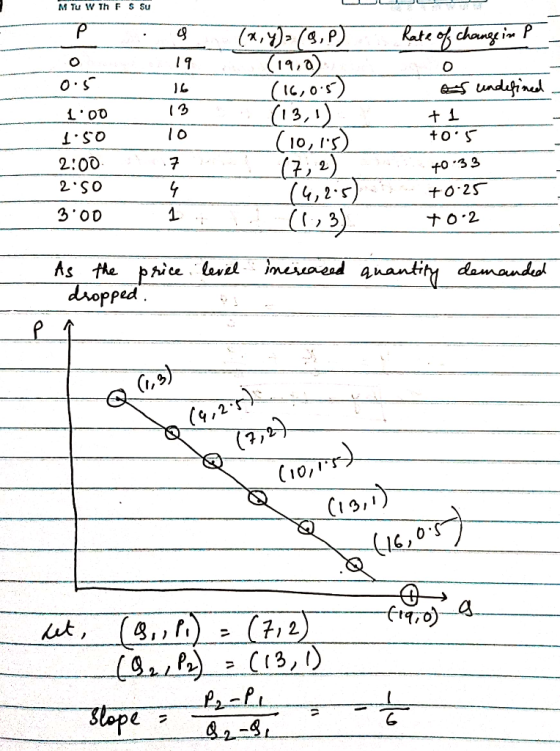 M Tu W Th F S Su
P Q (x,y)=(Q,P) Rate of change in P
0 19 (19,0) 0
0.5 16 (16,0.5) undefined
1.00 13 (13,1) +1
1.50 10 (10,1.5) +0.5
2.00 7 (7,2) +0.33
2.50 4 (4,2.5) +0.25
3.00 1 (1,3) +0.2
As the price level increased quantity demanded
dropped.
P
(1,3)
(4,2.5)
(7,2)
(10,1.5)
(13,1)
(16,0.5)
(19,0) Q
Let, (Q₁,P₁) = (7,2)
(Q₂,P₂) = (13,1)
Slope = P₂-P₁ / Q₂-Q₁ = - 1/6